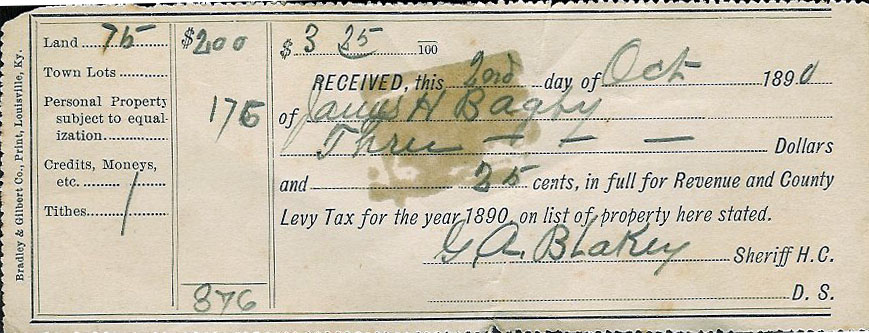 Bradley & Gilbert Co., Print, Louisville, Ky.
Land 75 $200
Town Lots
Personal Property
subject to equal-
ization 176
Credits, Moneys,
etc.
Tithes 1
376
$ 3 25/100
RECEIVED, this 2nd day of Oct 1890
of James H Bagby
Three — — — Dollars
and 25 cents, in full for Revenue and County
Levy Tax for the year 1890, on list of property here stated.
G. A. Blakey Sheriff H. C.
D. S.